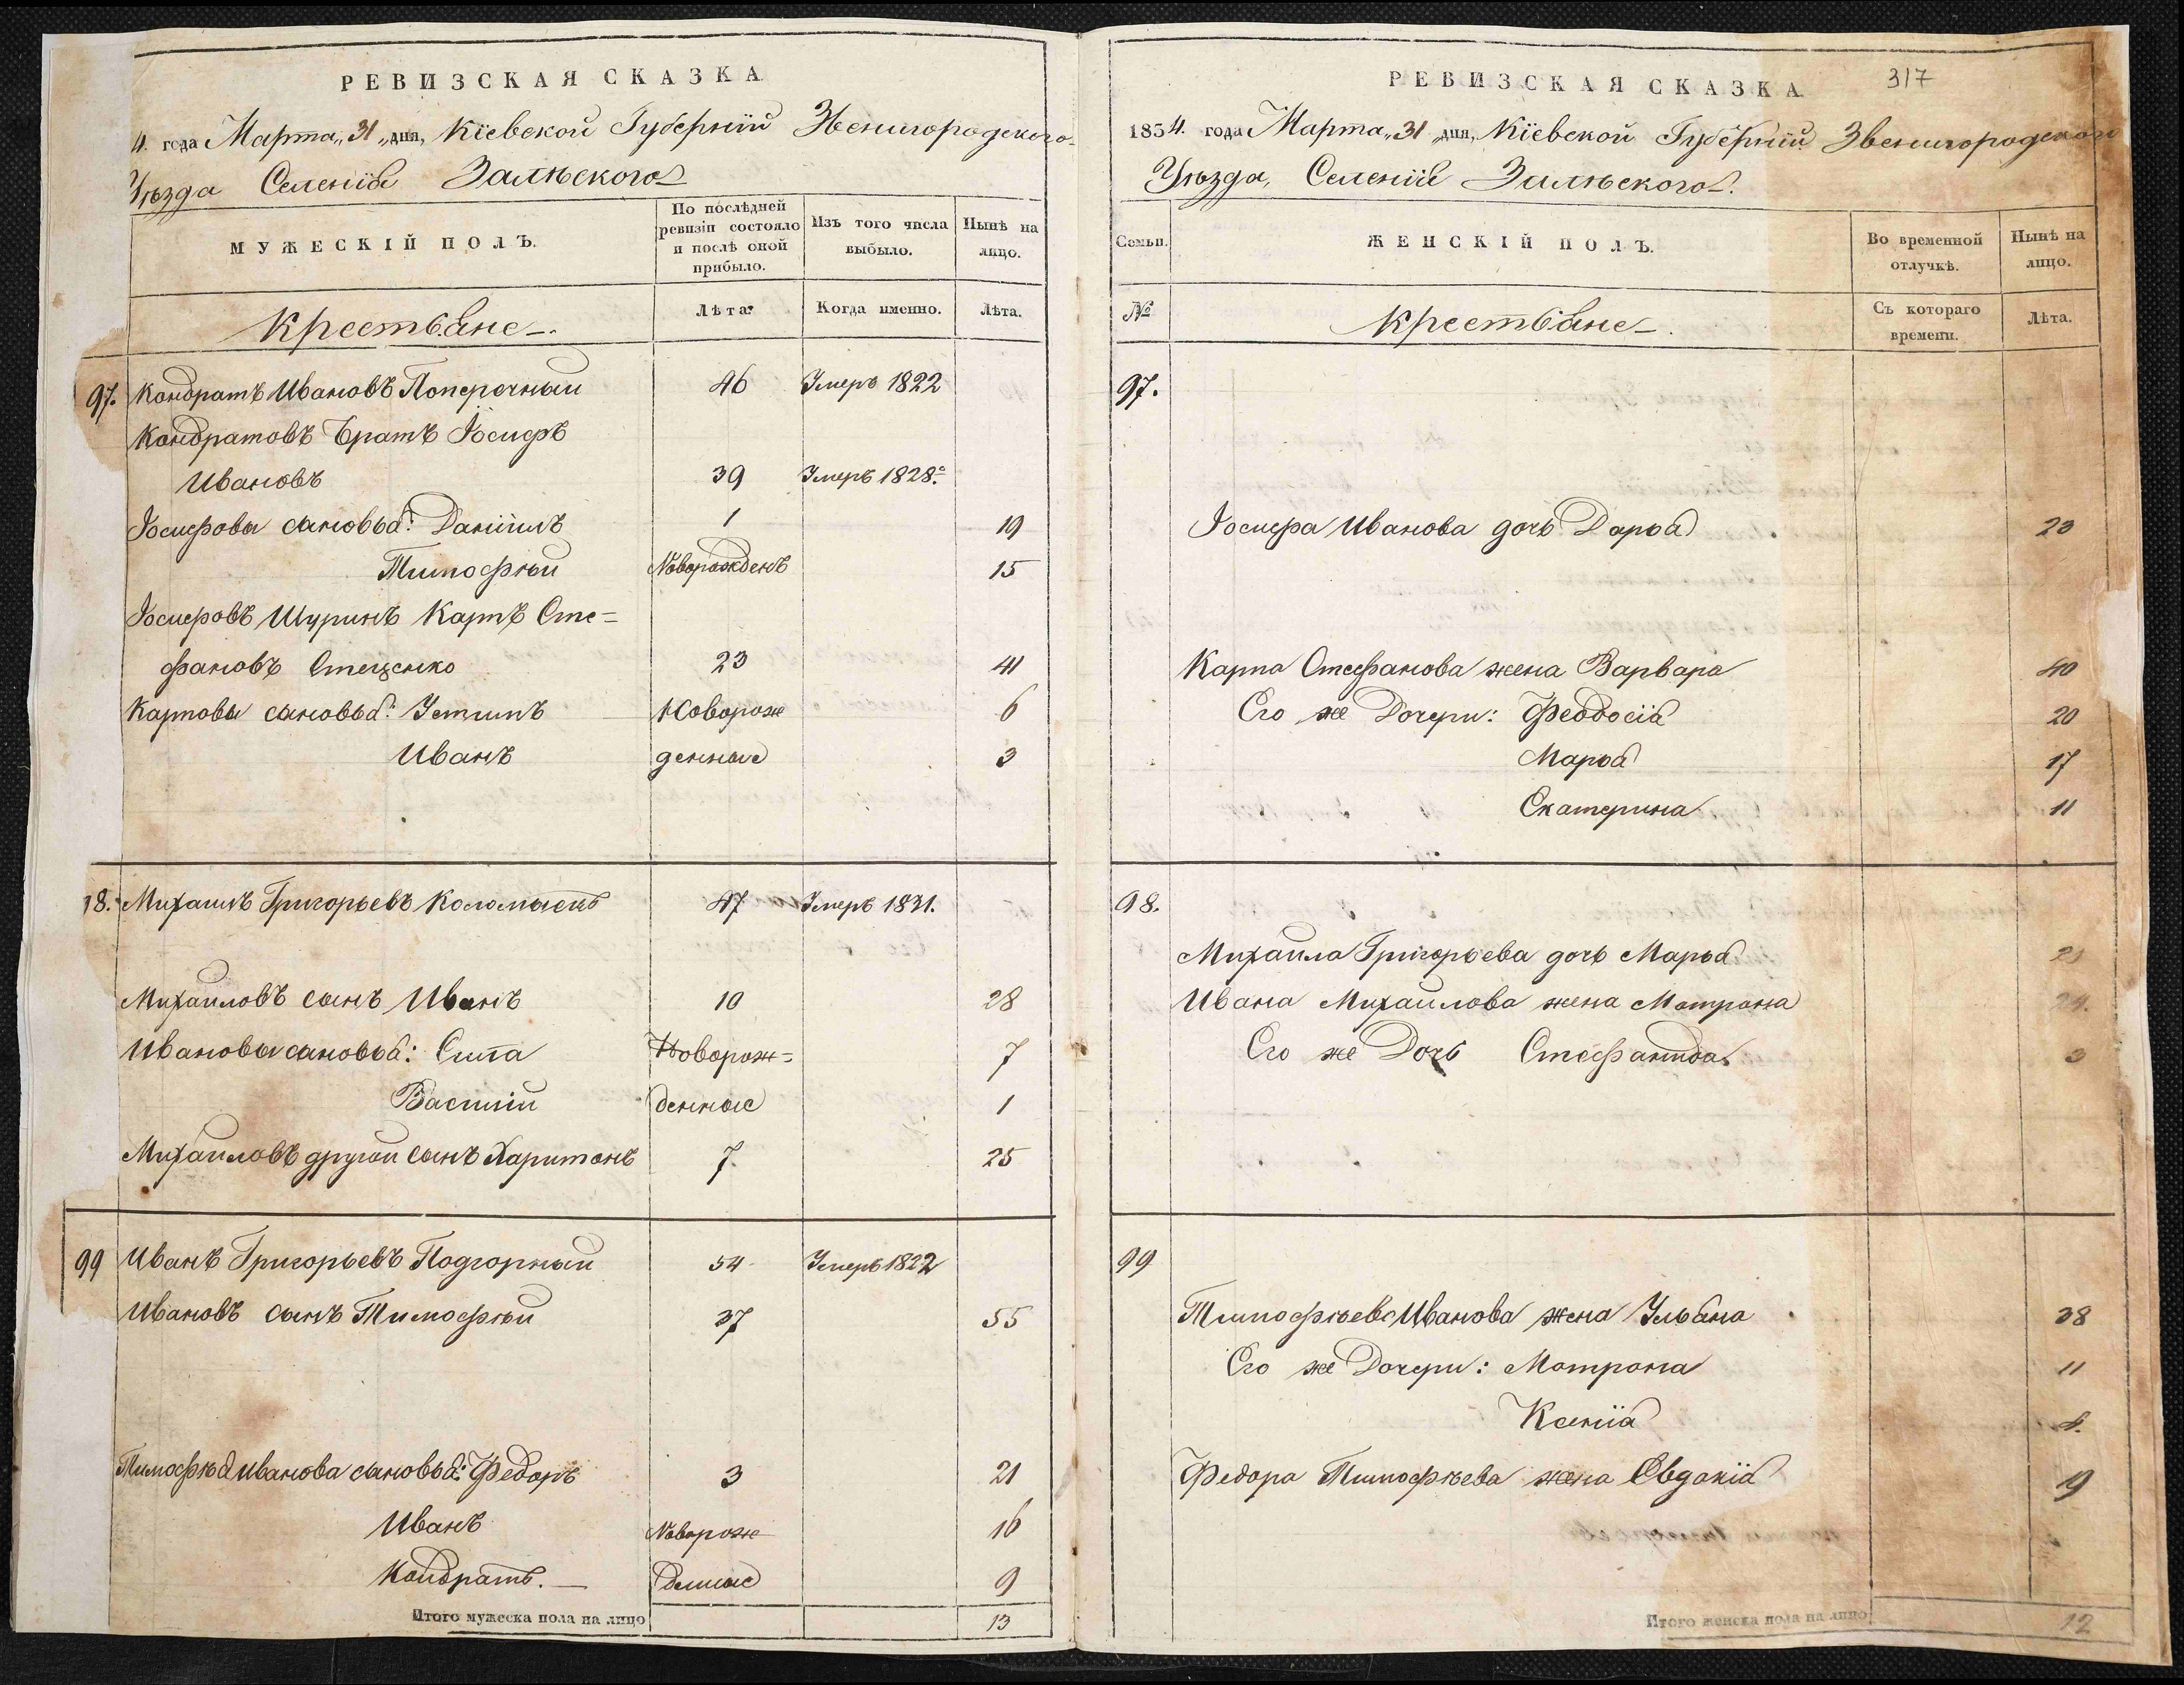 РЕВИЗСКАЯ СКАЗКА
4. года Марта „31„ дня, Кіевской Губерніи Звенигородского
Уѣзда Селенія Залѣского
МУЖЕСКІЙ ПОЛЪ.
По послѣдней ревизіи состояло и послѣ оной прибыло.
Изъ того числа выбыло.
Нынѣ на лицо.
Крестьяне
Лѣта.
Когда именно.
Лѣта.
97. Кондратъ Ивановъ Поперечный 46 Умеръ 1822
Кондратовъ Братъ Іосифъ
Ивановъ 39 Умеръ 1828.
Іосифовы сыновья: Даніилъ 1 19
Тимофѣй Новорожденъ 15
Іосифовъ Шуринъ Карпъ Сте=
фановъ Стеценко 23 41
Карповы сыновья: Устинъ Новорож 6
Иванъ денные 3
98. Михаилъ Григорьевъ Коломыецъ 47 Умеръ 1831.
Михайловъ сынъ Иванъ 10 28
Ивановы сыновья: Сила Новорож= 7
Василій денные 1
Михайловъ другой сынъ Харитонъ 7. 25
99 Иванъ Григорьевъ Подгорный 54 Умеръ 1822
Ивановъ сынъ Тимофѣй 37 55
Тимофѣя Иванова сыновья: Федоръ 3 21
Иванъ Новорож 16
Кондратъ. денные 9
Итого мужеска пола на лицо 13
317
РЕВИЗСКАЯ СКАЗКА
1834. года Марта „31„ дня, Кіевской Губерніи Звенигородского
Уѣзда, Селенія Залѣского.
Семьи.
ЖЕНСКІЙ ПОЛЪ.
Во временной отлучкѣ.
Нынѣ на лицо.
№
Крестьяне.
Съ котораго времени.
Лѣта.
97.
Іосифа Иванова дочь Дарья 23
Карпа Стефанова жена Варвара 40
Его же Дочери: Феодосія 20
Марья 17
Екатерина 11
98.
Михайла Григорьева дочь Марья
Ивана Михайлова жена Матрона 24.
Его же Дочь Стефанида 3
99
Тимофѣева Иванова жена Ульяна 38
Его же Дочери: Матрона 11
Ксенія
Федора Тимофѣева жена Евдокія 19
Итого женска пола на лицо 12